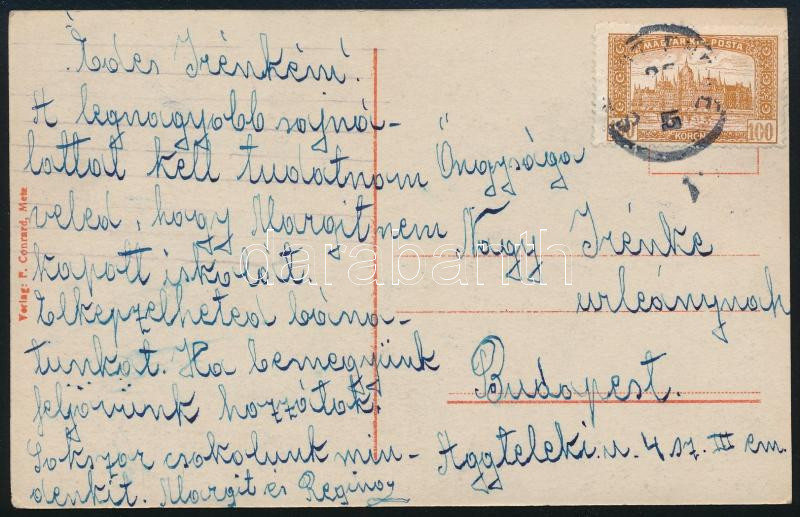 Édes Irénkém!
A legnagyobb sajná-
lattal kell tudatnom
veled, hogy Margit nem
kapott iskolát.
Elképzelheted bána-
tunkat. Ha bemegyünk
feljövünk hozzátok.
Sokszor csokolunk min-
denkit. Margit és Reginoz
Verlag: P. Conrard, Metz
MAGYAR POSTA
KORONA
100
Önagysága
Nagy Irénke
urleánynak
Budapest.
Aggteleki u. 4 sz. III em.
darabanth